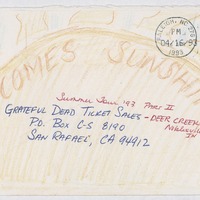 COMES SUNSHI
RALEIGH, NC 276
PM
04/16/93
1993
Summer Tour '93 Part II
GRATEFUL DEAD TICKET SALES - DEER CREEK
Noblesville
IN
P.O. BOX C-S 8190
SAN RAFAEL, CA 94912